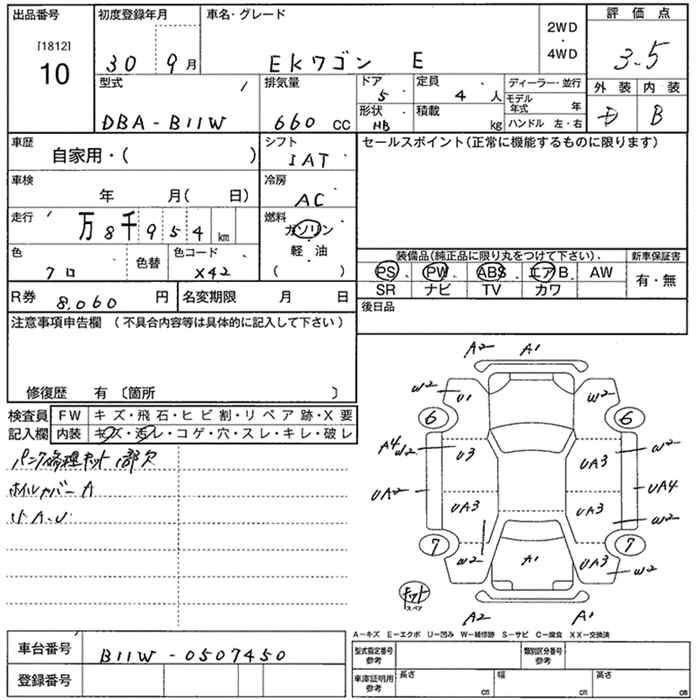 出品番号 初度登録年月 車名・グレード 評価点
[1812] 10 30 9月 EKワゴン E 2WD・4WD 3.5
型式 排気量 ドア 定員 ディーラー・並行 外装 内装
DBA-B11W 660 CC 5 4人 モデル年式 年 D B
形状 HB 積載 kg ハンドル 左・右
車歴 シフト セールスポイント(正常に機能するものに限ります)
自家用・( ) IAT
車検 冷房
年 月( 日) AC
走行 燃料
万8千954km ガソリン
軽・油
( )
色 色替 色コード
クロ X42
装備品(純正品に限り丸をつけて下さい)、 新車保証書
PS PW ABS エアB AW 有・無
SR ナビ TV カワ
R券 8,060円 名変期限 月 日 後日品
注意事項申告欄 (不具合内容等は具体的に記入して下さい)
修復歴 有 〔箇所 〕
検査員 FW キズ・飛石・ヒビ割・リペア跡・X要
記入欄 内装 キズ・汚レ・コゲ・穴・スレ・キレ・破レ
パンク修理キット 1部欠
ホイルカバー A
A2 A1
W2 U1 W2
6 6
A4 W2 U3 UA3 W2
UA2 UA4
UA3 UA3 W2
7 7
W2 A1 UA3 W2
キット
スペア
A2 A1
A－キズ E－エクボ U－凹み W－補修跡 S－サビ C－腐食 XX－交換済
車台番号 B11W-0507450
登録番号
型式指定番号 参考 類別区分番号 参考
車庫証明用 参考 長さ cm 幅 cm 高さ cm